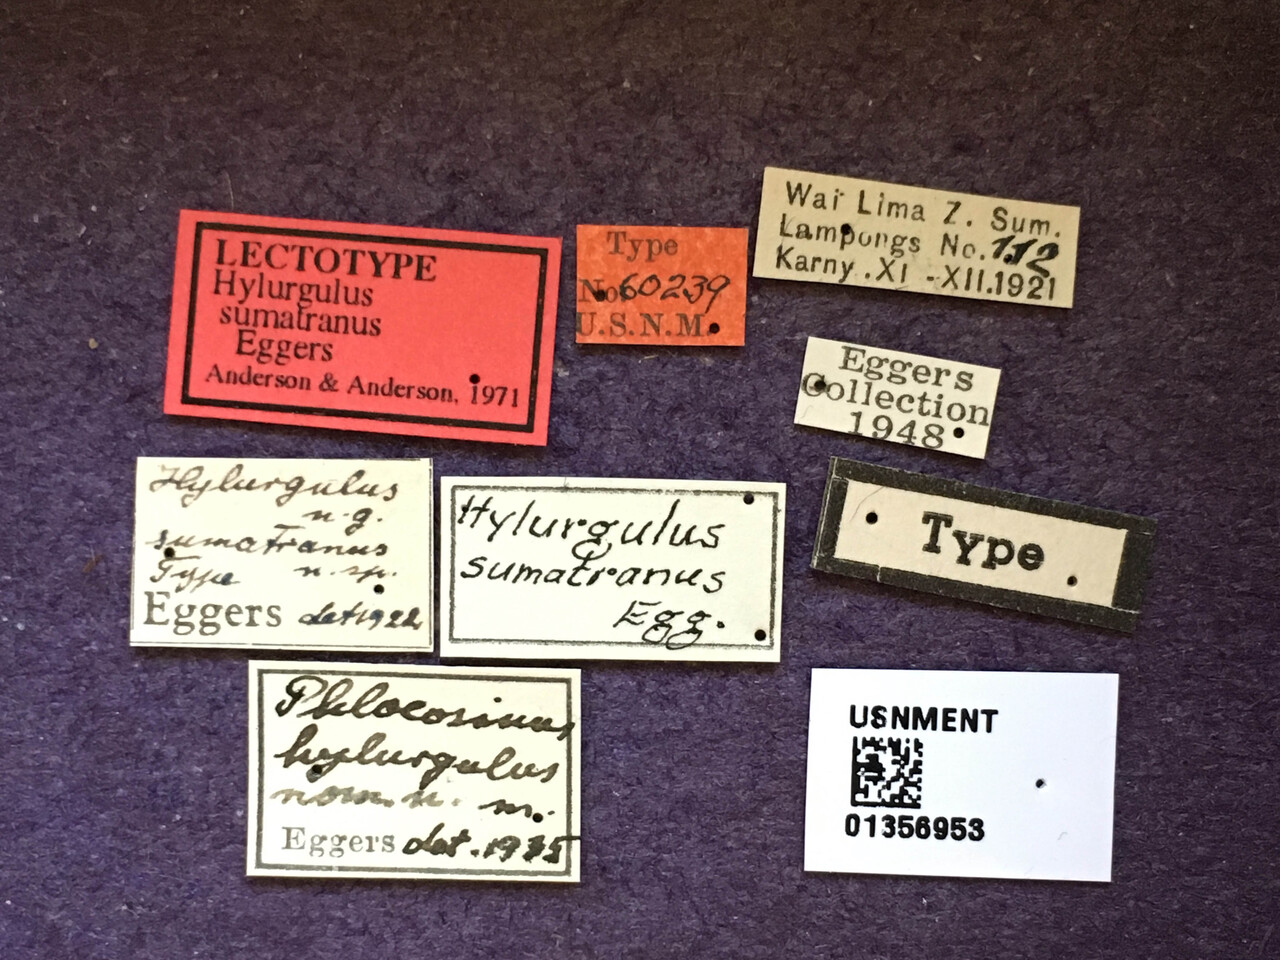 LECTOTYPE
Hylurgulus
sumatranus
Eggers
Anderson & Anderson, 1971
Type
No 60239
U.S.N.M.
Wai Lima Z. Sum.
Lampongs No. 112
Karny. XI -XII.1921
Eggers
Collection
1948
Hylurgulus
n.g.
sumatranus
Type n.sp.
Eggers det 1922
Hylurgulus
sumatranus
Egg.
Type
Phloeosinus
hylurgulus
nom. n. m.
Eggers det. 1935
USNMENT
01356953